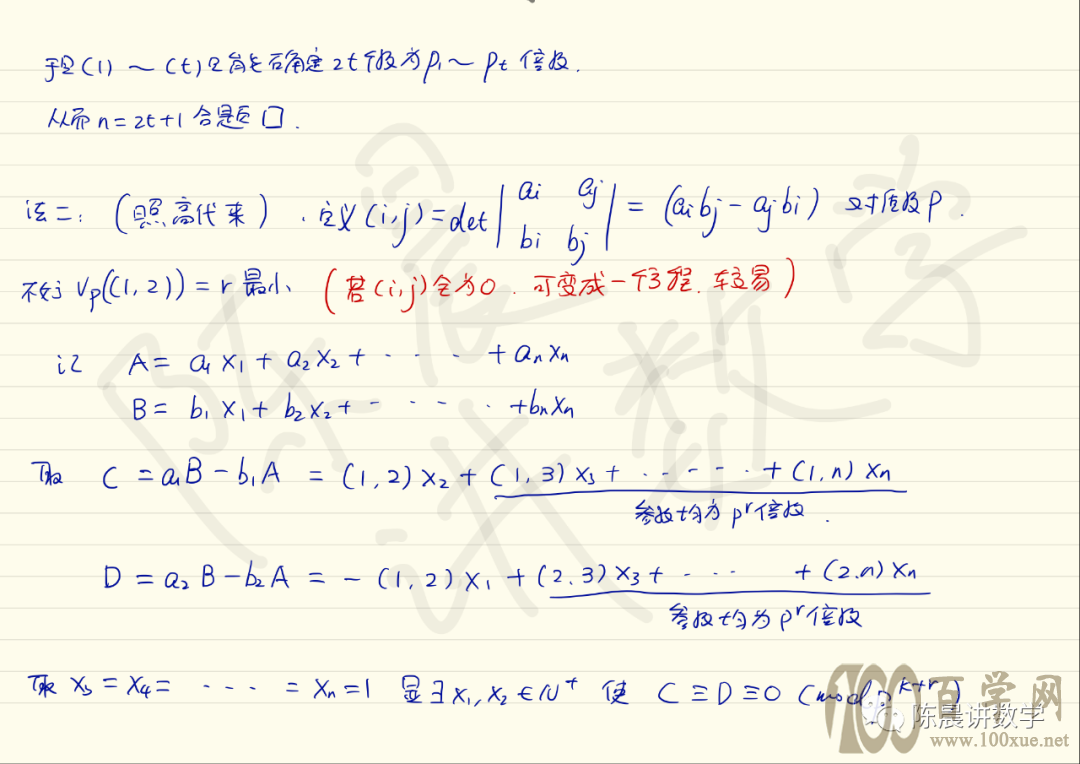 于是(1)~(t)只能确定2t个数为p₁~pₜ倍数.
从而n=2t+1合题□.
法二:(照高代来).定义(i,j)=det|aᵢ aⱼ bᵢ bⱼ|=(aᵢbⱼ-aⱼbᵢ) 对质数p.
不妨Vₚ((1,2))=r最小(若(i,j)全为0.可变成一个方程.较易)
记 A=a₁x₁+a₂x₂+····+aₙxₙ
B=b₁x₁+b₂x₂+····+bₙxₙ
取 C=a₁B-b₁A=(1,2)x₂+(1,3)x₃+·····+(1,n)xₙ
参数均为pʳ倍数.
D=a₂B-b₂A=-(1,2)x₁+(2,3)x₃+···+(2.n)xₙ
参数均为pʳ倍数
取x₃=x₄=···=xₙ=1 显∃x₁,x₂∈N⁺ 使 C≡D≡0(mod pᵏ⁺ʳ)
陈晨讲数学
100百学网
www.100xue.net